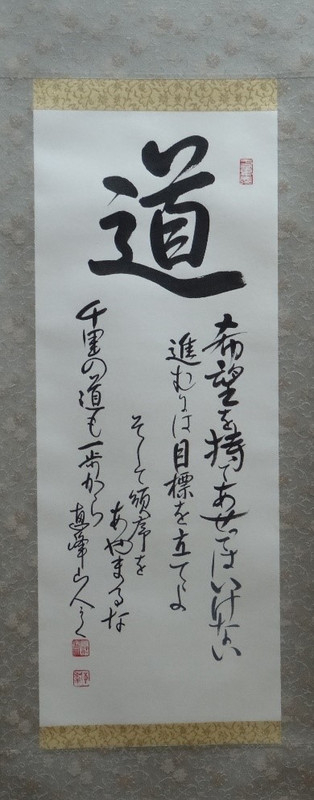 道
希望を持てあせってはいけない
進むには目標を立てよ
そして順序を
あやまるな
千里の道も一歩から
直峰山人之